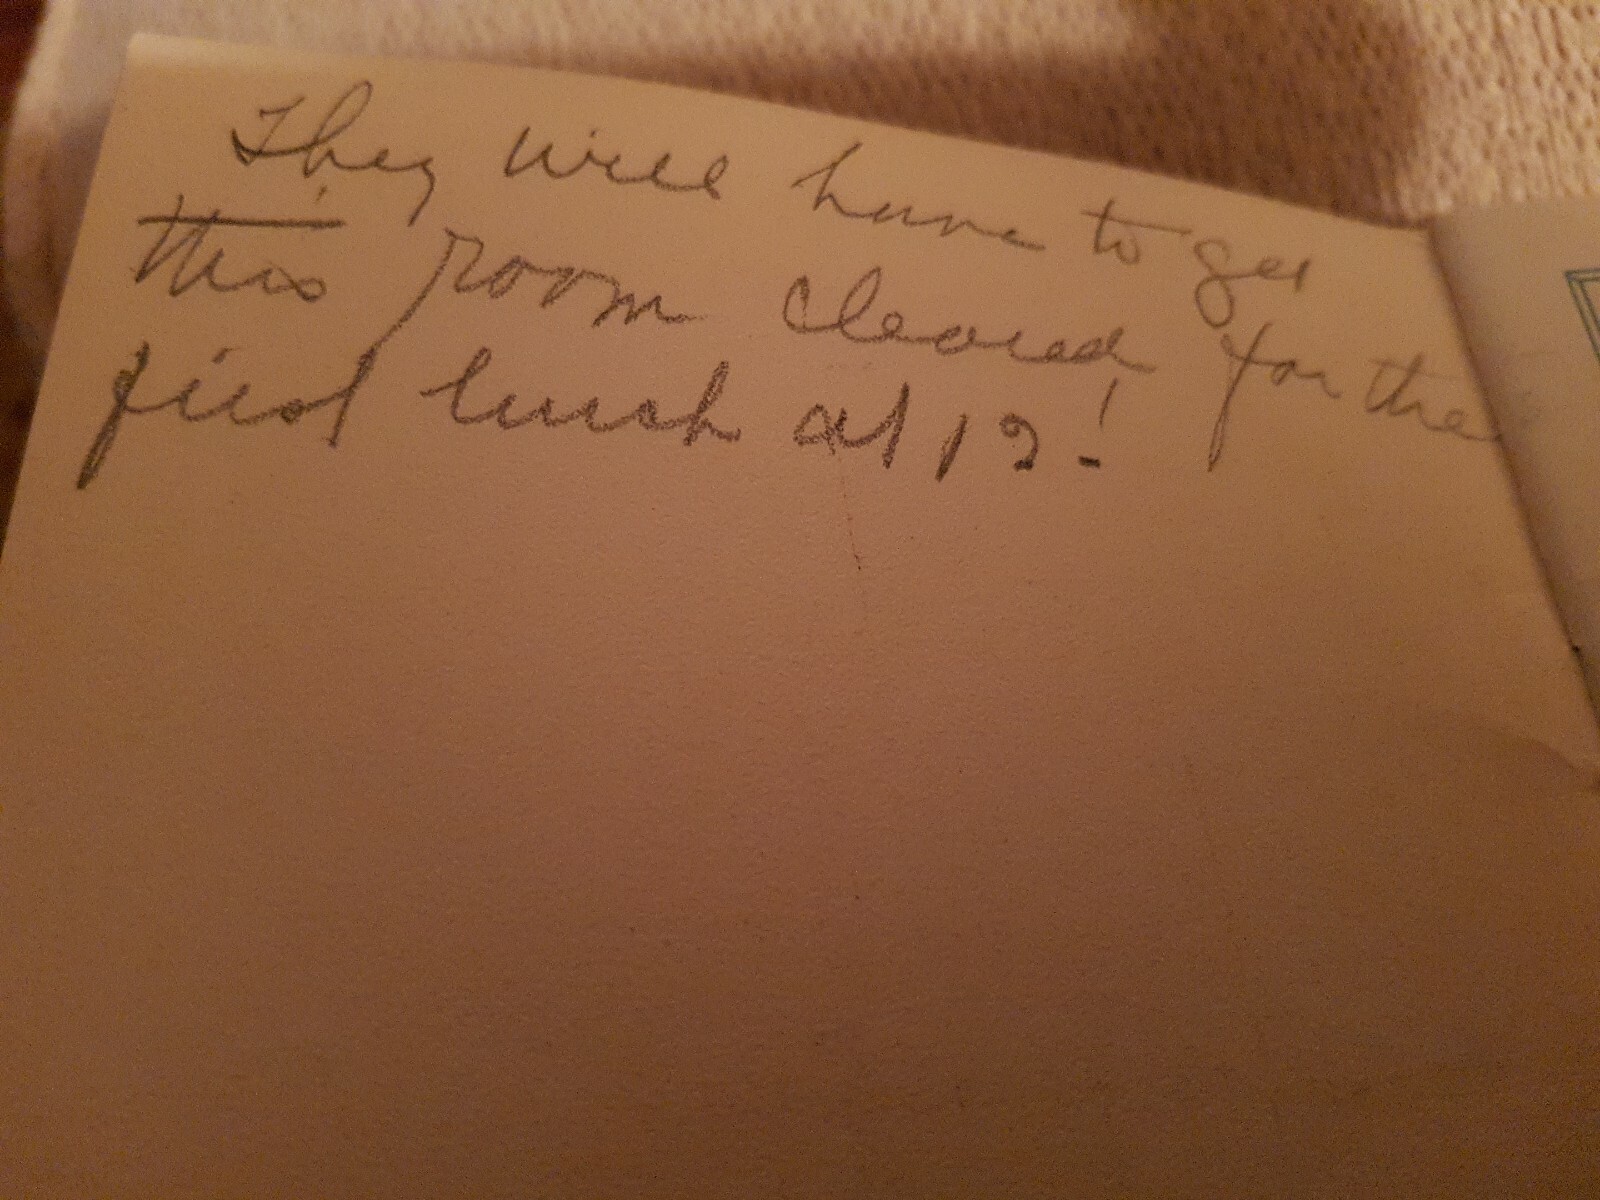 They will have to get
this room cleared for the
first lunch at 12!